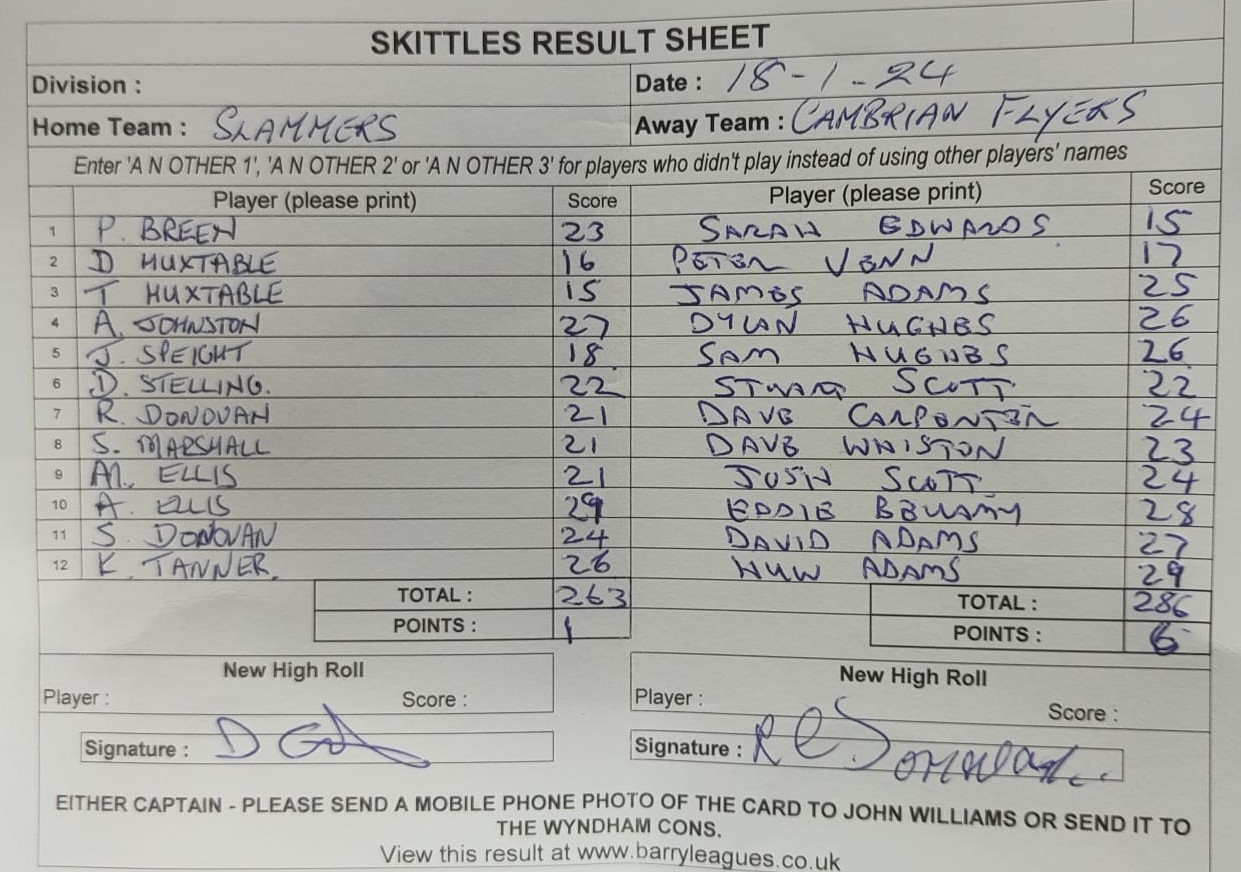 SKITTLES RESULT SHEET
Division : Date : 18-1-24
Home Team : SLAMMERS Away Team : CAMBRIAN FLYERS
Enter 'A N OTHER 1', 'A N OTHER 2' or 'A N OTHER 3' for players who didn't play instead of using other players' names
Player (please print) Score Player (please print) Score
1 P. BREEN 23 SARAH EDWARDS 15
2 D HUXTABLE 16 PETER VENN 17
3 T HUXTABLE 15 JAMES ADAMS 25
4 A. JOHNSTON 27 DYLAN HUGHES 26
5 J. SPEIGHT 18 SAM HUGHES 26
6 D. STELLING. 22 STUART SCOTT 22
7 R. DONOVAN 21 DAVE CARPENTER 24
8 S. MARSHALL 21 DAVE WHISTON 23
9 M. ELLIS 21 JOSH SCOTT 24
10 A. ELLIS 29 EDDIE BELLAMY 28
11 S. DONOVAN 24 DAVID ADAMS 27
12 K. TANNER. 26 HUW ADAMS 29
TOTAL : 263 TOTAL : 286
POINTS : 1 POINTS : 6
New High Roll New High Roll
Player : Score : Player : Score :
Signature : D Signature : R
EITHER CAPTAIN - PLEASE SEND A MOBILE PHONE PHOTO OF THE CARD TO JOHN WILLIAMS OR SEND IT TO
THE WYNDHAM CONS.
View this result at www.barryleagues.co.uk